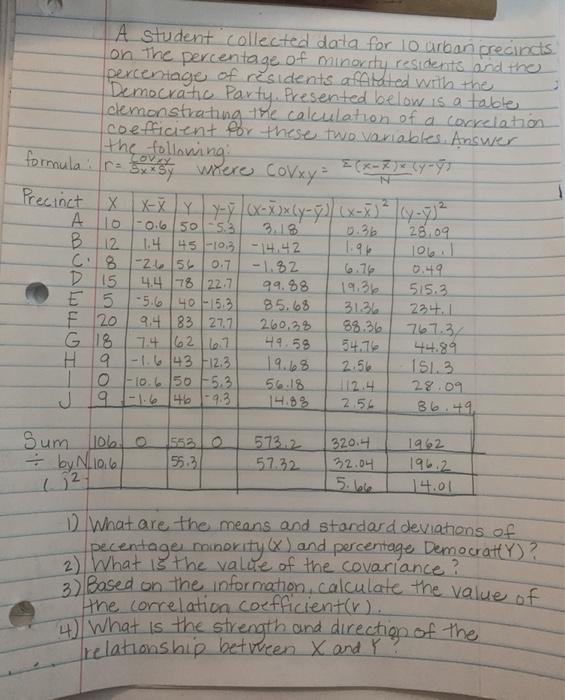 A student collected data for 10 urban precincts
on the percentage of minority residents and the
percentage of residents affilated with the
Democratic Party. Presented below is a table
demonstrating the calculation of a correlation
coefficient for these two variables. Answer
the following:
formula: r = Covxy / Sx×Sy where Covxy = Σ(x-x̄)×(y-ȳ) / N
Precinct X X-X̄ Y Y-Ȳ (X-X̄)×(y-ȳ) (X-X̄)² (y-ȳ)²
A 10 -0.6 50 -5.3 3.18 0.36 28.09
B 12 1.4 45 -10.3 -14.42 1.96 106.1
C. 8 -2.6 56 0.7 -1.82 6.76 0.49
D 15 4.4 78 22.7 99.88 19.36 515.3
E 5 -5.6 40 -15.3 85.68 31.36 234.1
F 20 9.4 83 27.7 260.38 88.36 767.3
G 18 7.4 62 6.7 49.58 54.76 44.89
H 9 -1.6 43 -12.3 19.68 2.56 151.3
I 0 -10.6 50 -5.3 56.18 112.4 28.09
J 9 -1.6 46 -9.3 14.88 2.56 86.49
Sum 106 0 553 0 573.2 320.4 1962
÷ by N 10.6 55.3 57.32 32.04 196.2
( )² 5.66 14.01
1) What are the means and standard deviations of
pecentage minority (X) and percentage Democratt(Y)?
2) What is the value of the covariance?
3) Based on the information, calculate the value of
the correlation coefficient(r).
4) What is the strength and direction of the
relationship between X and Y?